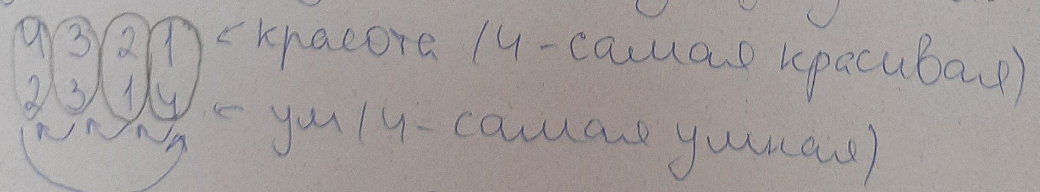 4 3 2 1 < красота (4-самая красивая)
2 3 1 4 < ум (4-самая умная)